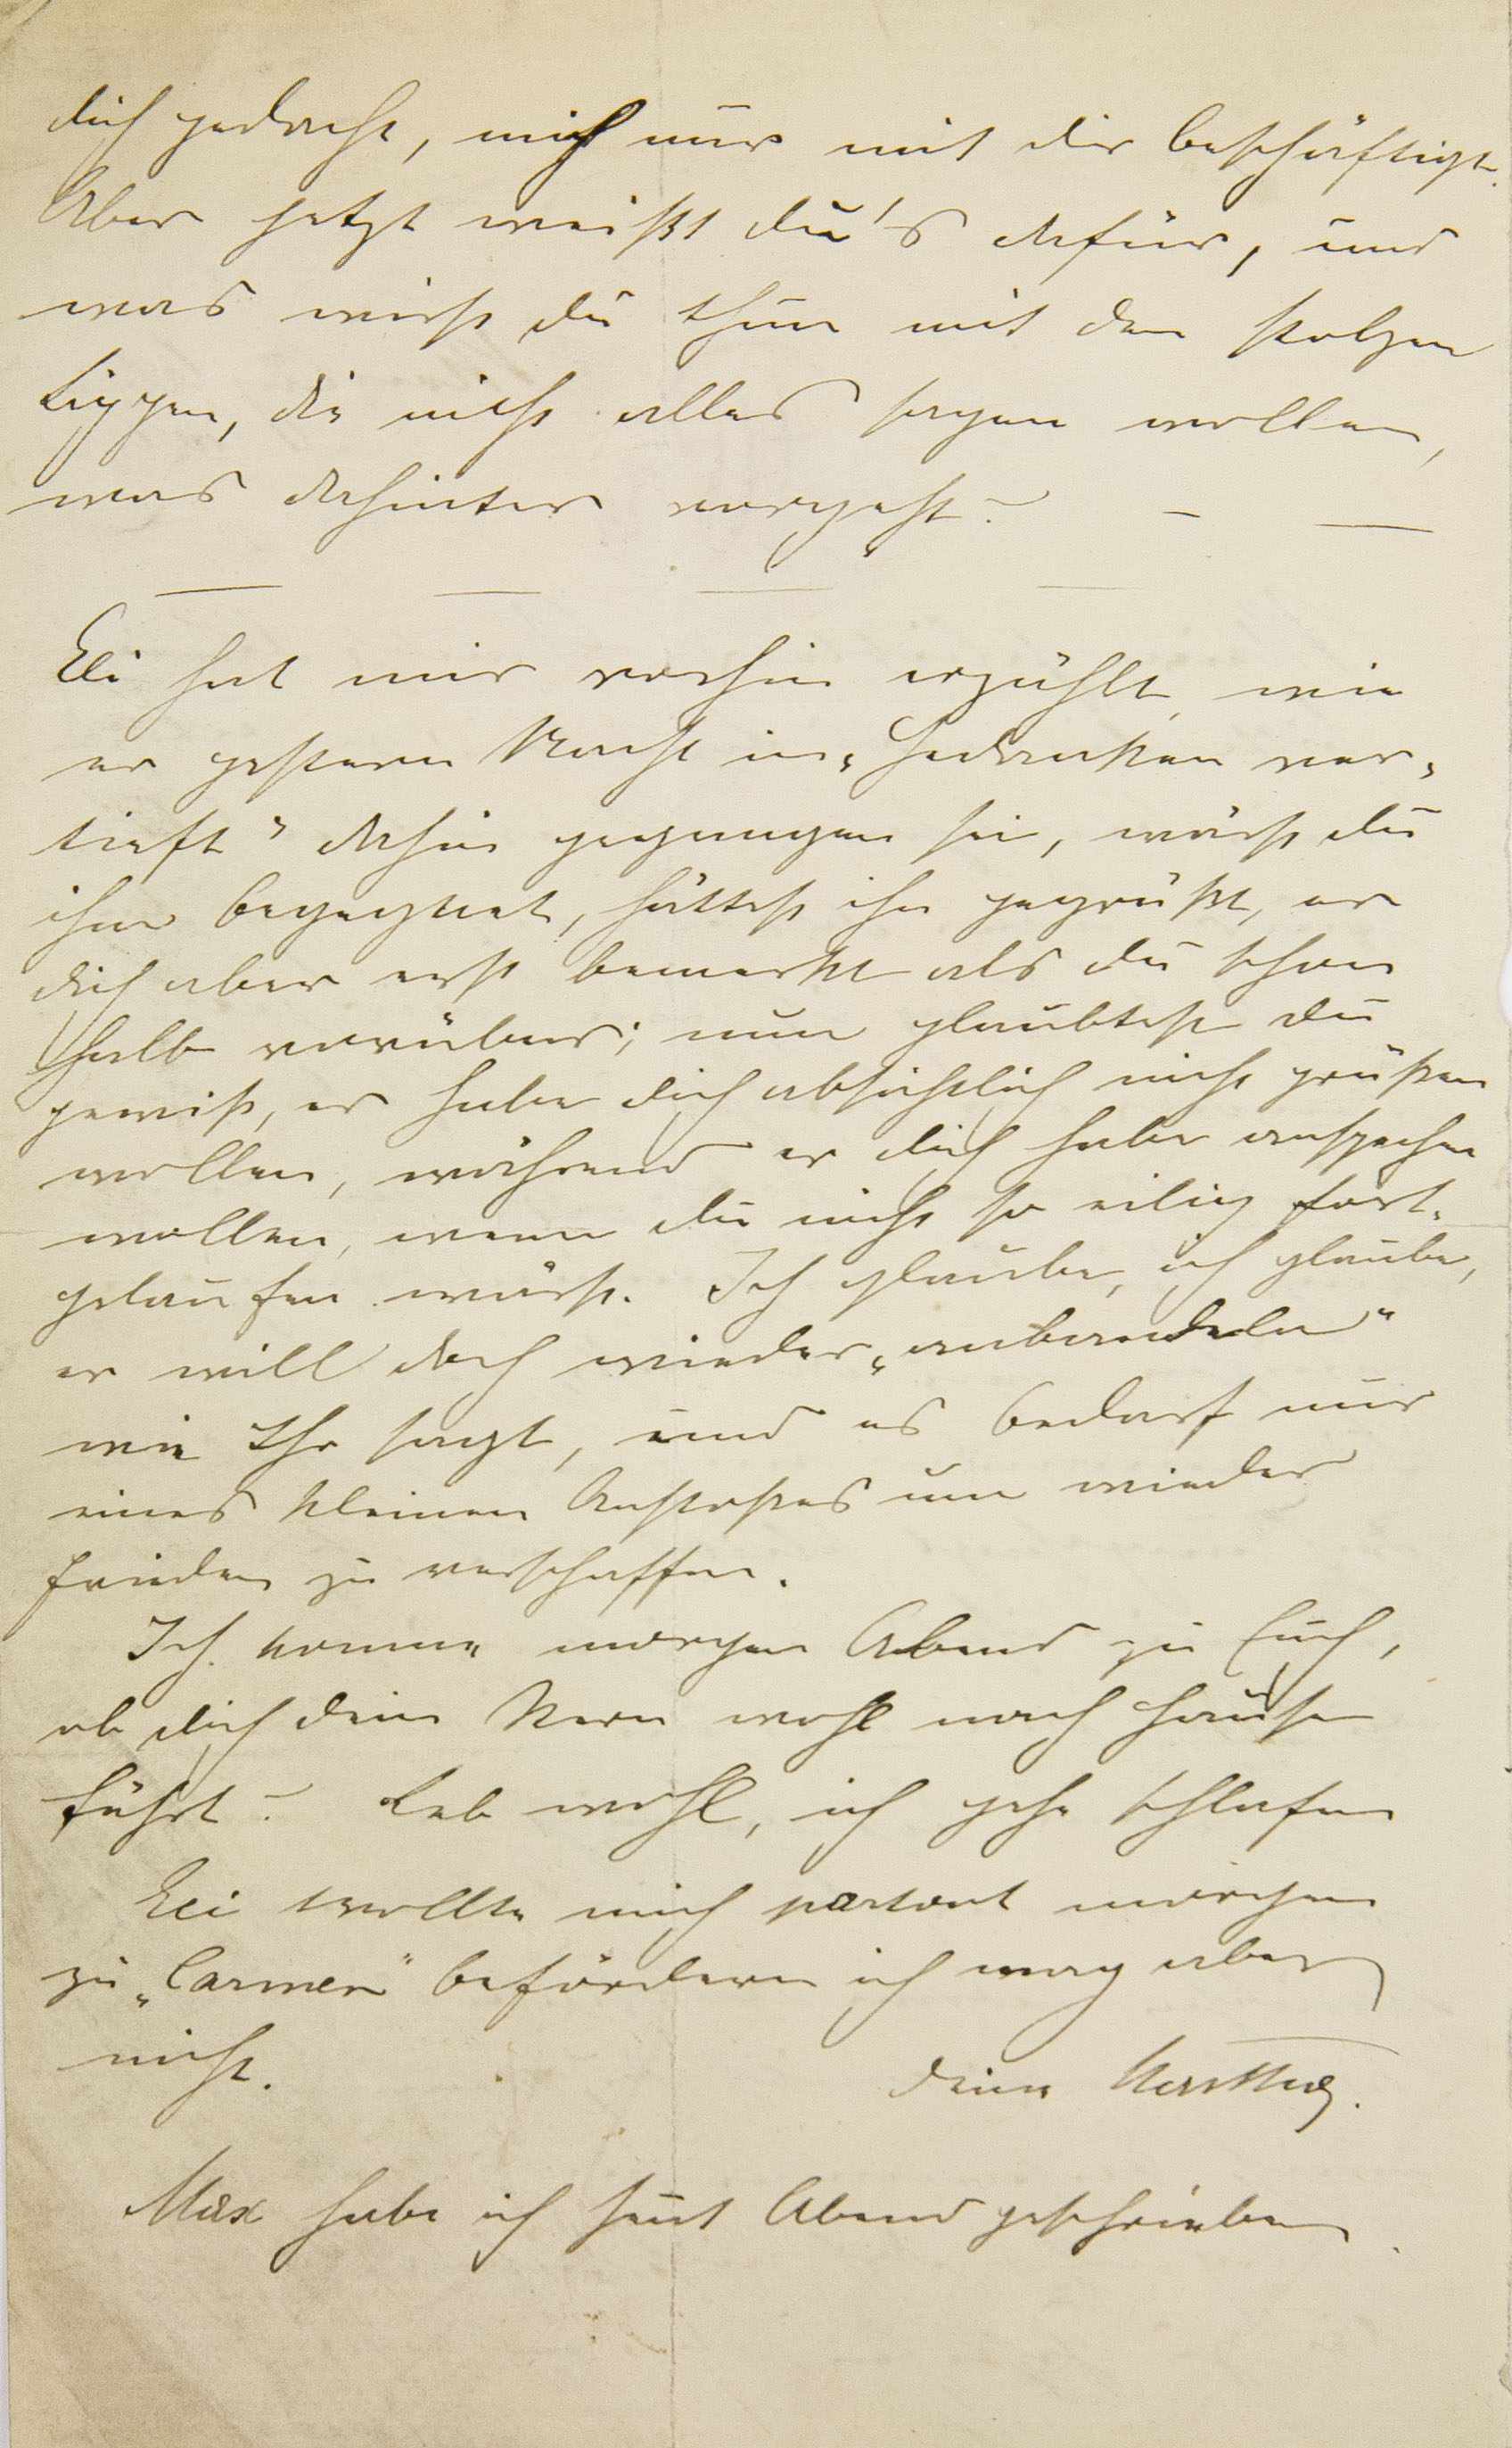 dich gedacht, mich nur mit dir beschäftigt.
Aber jetzt weißt du's dafür, und
was wirst du thun mit den stolzen
Lippen, die nicht alles sagen wollen,
was dahinter vorgeht? – –
– – – –
Eli hat mir vorhin erzählt, wie
er gestern Nacht in „Gedanken ver-
tieft" dahin gegangen sei, wärst du
ihm begegnet, hättest ihn gegrüßt, er
dich aber erst bemerkt als du schon
halb vorüber; nun glaubtest du
gewiß, er habe dich absichtlich nicht grüßen
wollen, während er dich habe ansprechen
wollen, wenn du nicht so eilig fort-
gelaufen wärst. Ich glaube, ich glaube,
er will doch wieder „anbandeln"
wie Ihr sagt, und es bedarf nur
eines kleinen Anstoßes um wieder
Frieden zu verschaffen.
Ich komme morgen Abend zu Euch,
ob dich dein Stern wohl nach Hause
führt? Leb wohl, ich gehe schlafen
Eli wollte mich partout morgen
zu „Carmen" befördern ich mag aber
nicht.
deine
Max habe ich heut Abend geschrieben.